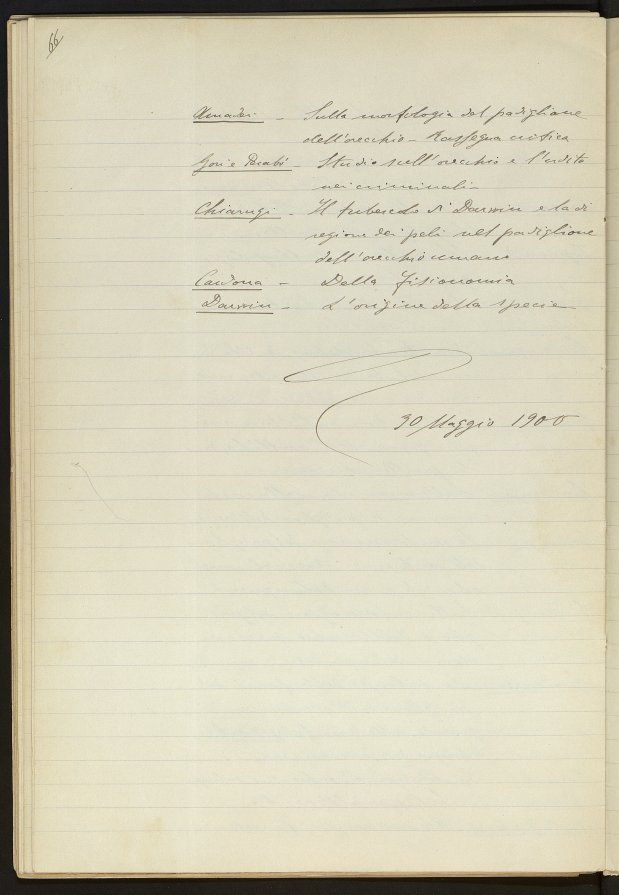 66
Amadei - Sulla morfologia del padiglione
dell'orecchio - Rassegna critica
e - Studio sull'orecchio e l'udito
nei criminali -
Chiarugi - Il tubercolo di Darwin e la di
rezione dei peli nel padiglione
dell'orecchio umano
Cardona - Della fisionomia
Darwin - L'origine della specie
30 Maggio 1900